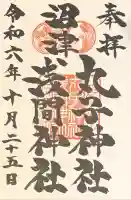 奉拝
丸子神社
沼津
浅間神社
令和六年十月二十五日